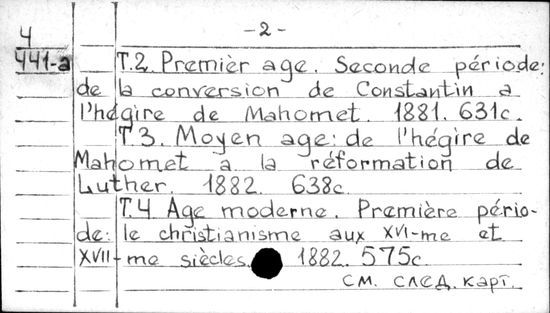 4
441-a
-2-
T.2. Premièr age. Seconde période:
de la conversion de Constantin a
l'hégire de Mahomet. 1881. 631c.
T.3. Moyen age: de l'hégire de
Mahomet a la réformation de
Luther. 1882. 638c.
T.4 Age moderne. Première pério-
de: le christianisme aux XVI-me et
XVII-me siècles. 1882. 575c.
см. след. карт.